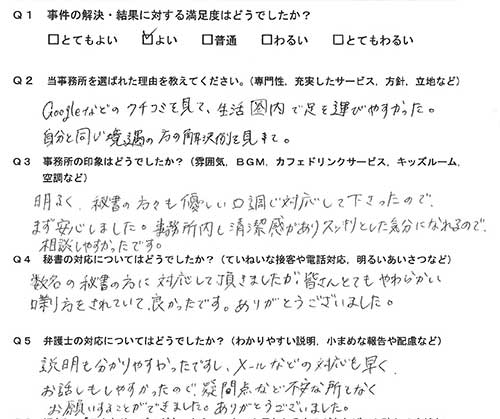 Q1 事件の解決・結果に対する満足度はどうでしたか?
□とてもよい ☑よい □普通 □わるい □とてもわるい
Q2 当事務所を選ばれた理由を教えてください。(専門性, 充実したサービス, 方針, 立地など)
Googleなどのクチコミを見て、生活圏内で足を運びやすかった。
自分と同じ境遇の方の解決例を見て。
Q3 事務所の印象はどうでしたか?(雰囲気, BGM, カフェドリンクサービス, キッズルーム,
空調など)
明るく、秘書の方々も優しい口調で対応して下さったので、
まず安心しました。事務所内も清潔感がありスッキリとした気分になれるので、
相談しやすかったです。
Q4 秘書の対応についてはどうでしたか?(ていねいな接客や電話対応, 明るいあいさつなど)
数名の秘書の方に対応して頂きましたが、皆さんとてもやわらかい
喋り方をされていて、良かったです。ありがとうございました。
Q5 弁護士の対応についてはどうでしたか?(わかりやすい説明, 小まめな報告や配慮など)
説明も分かりやすかったですし、メールなどの対応も早く、
お話しもしやすかったので、疑問点など不安な所もなく
お願いすることができました。ありがとうございました。